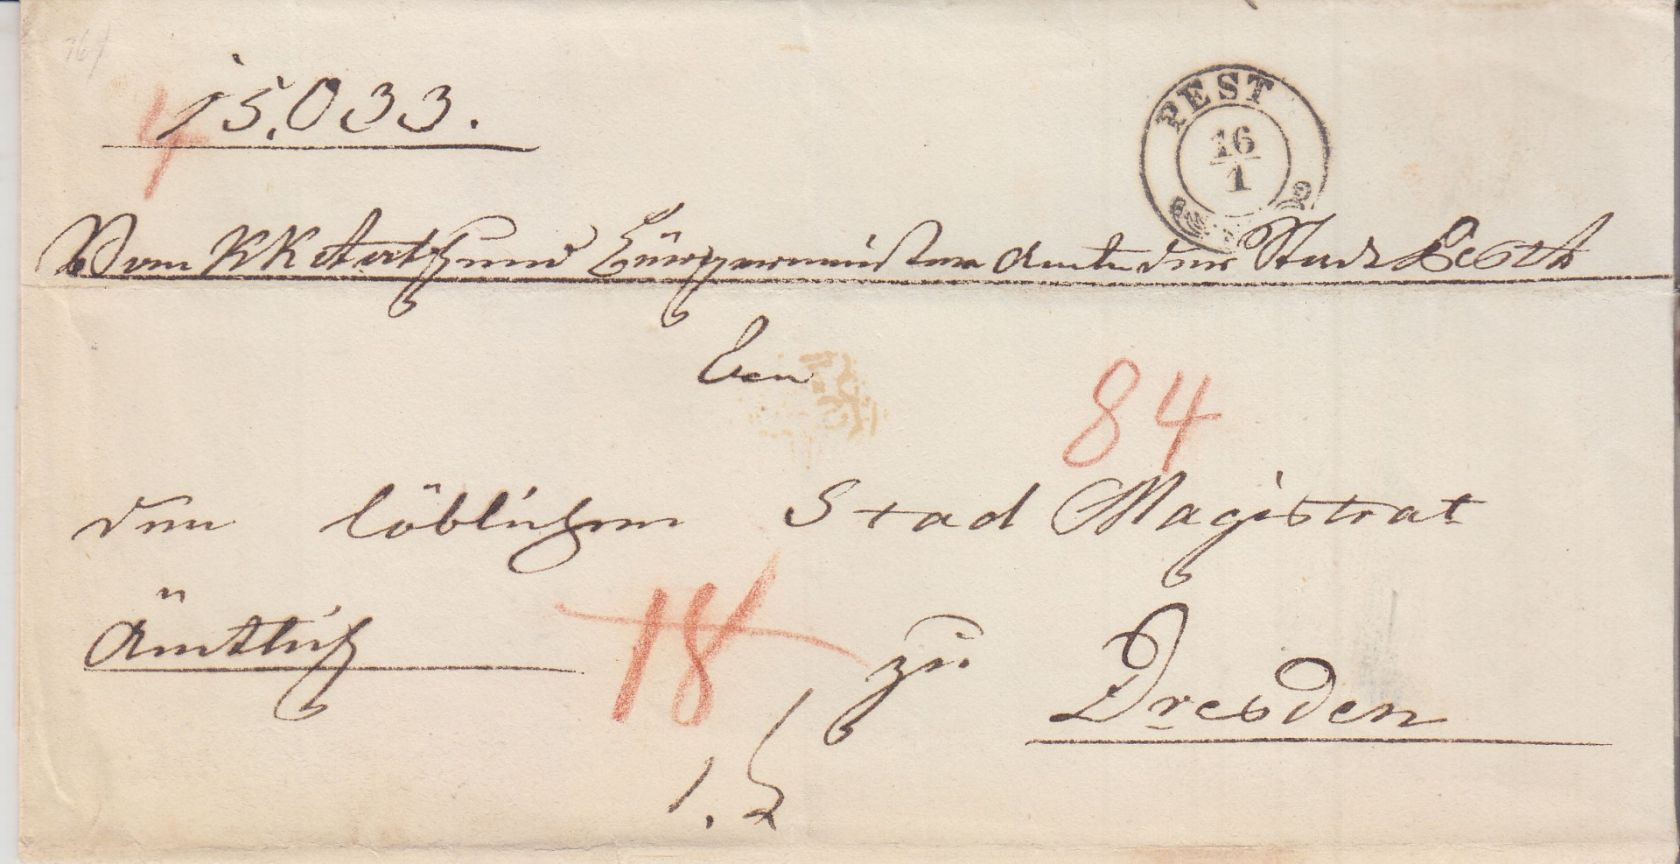 15.033.
4
PEST
16
1
Vom KK und Bürgermeister Amte der Stadt Pesth
An
84
den löblichen Stad Magistrat
Ämtlich
18
zu
Dresden